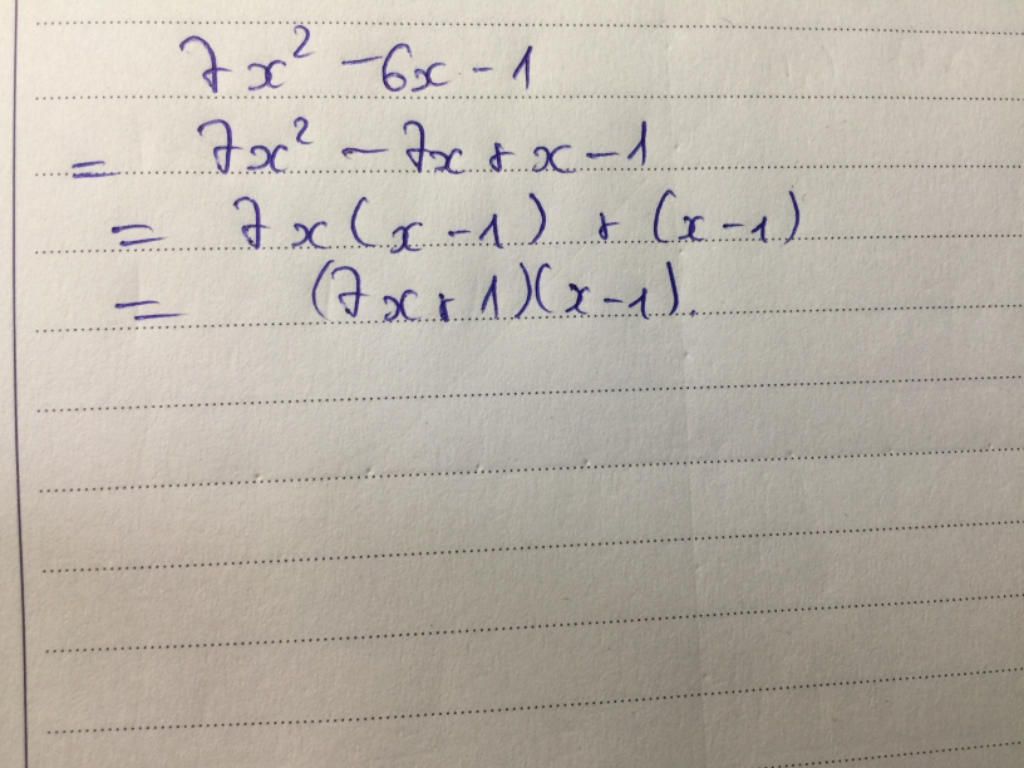 7x² - 6x - 1
= 7x² - 7x + x - 1
= 7x(x - 1) + (x - 1)
= (7x + 1)(x - 1).